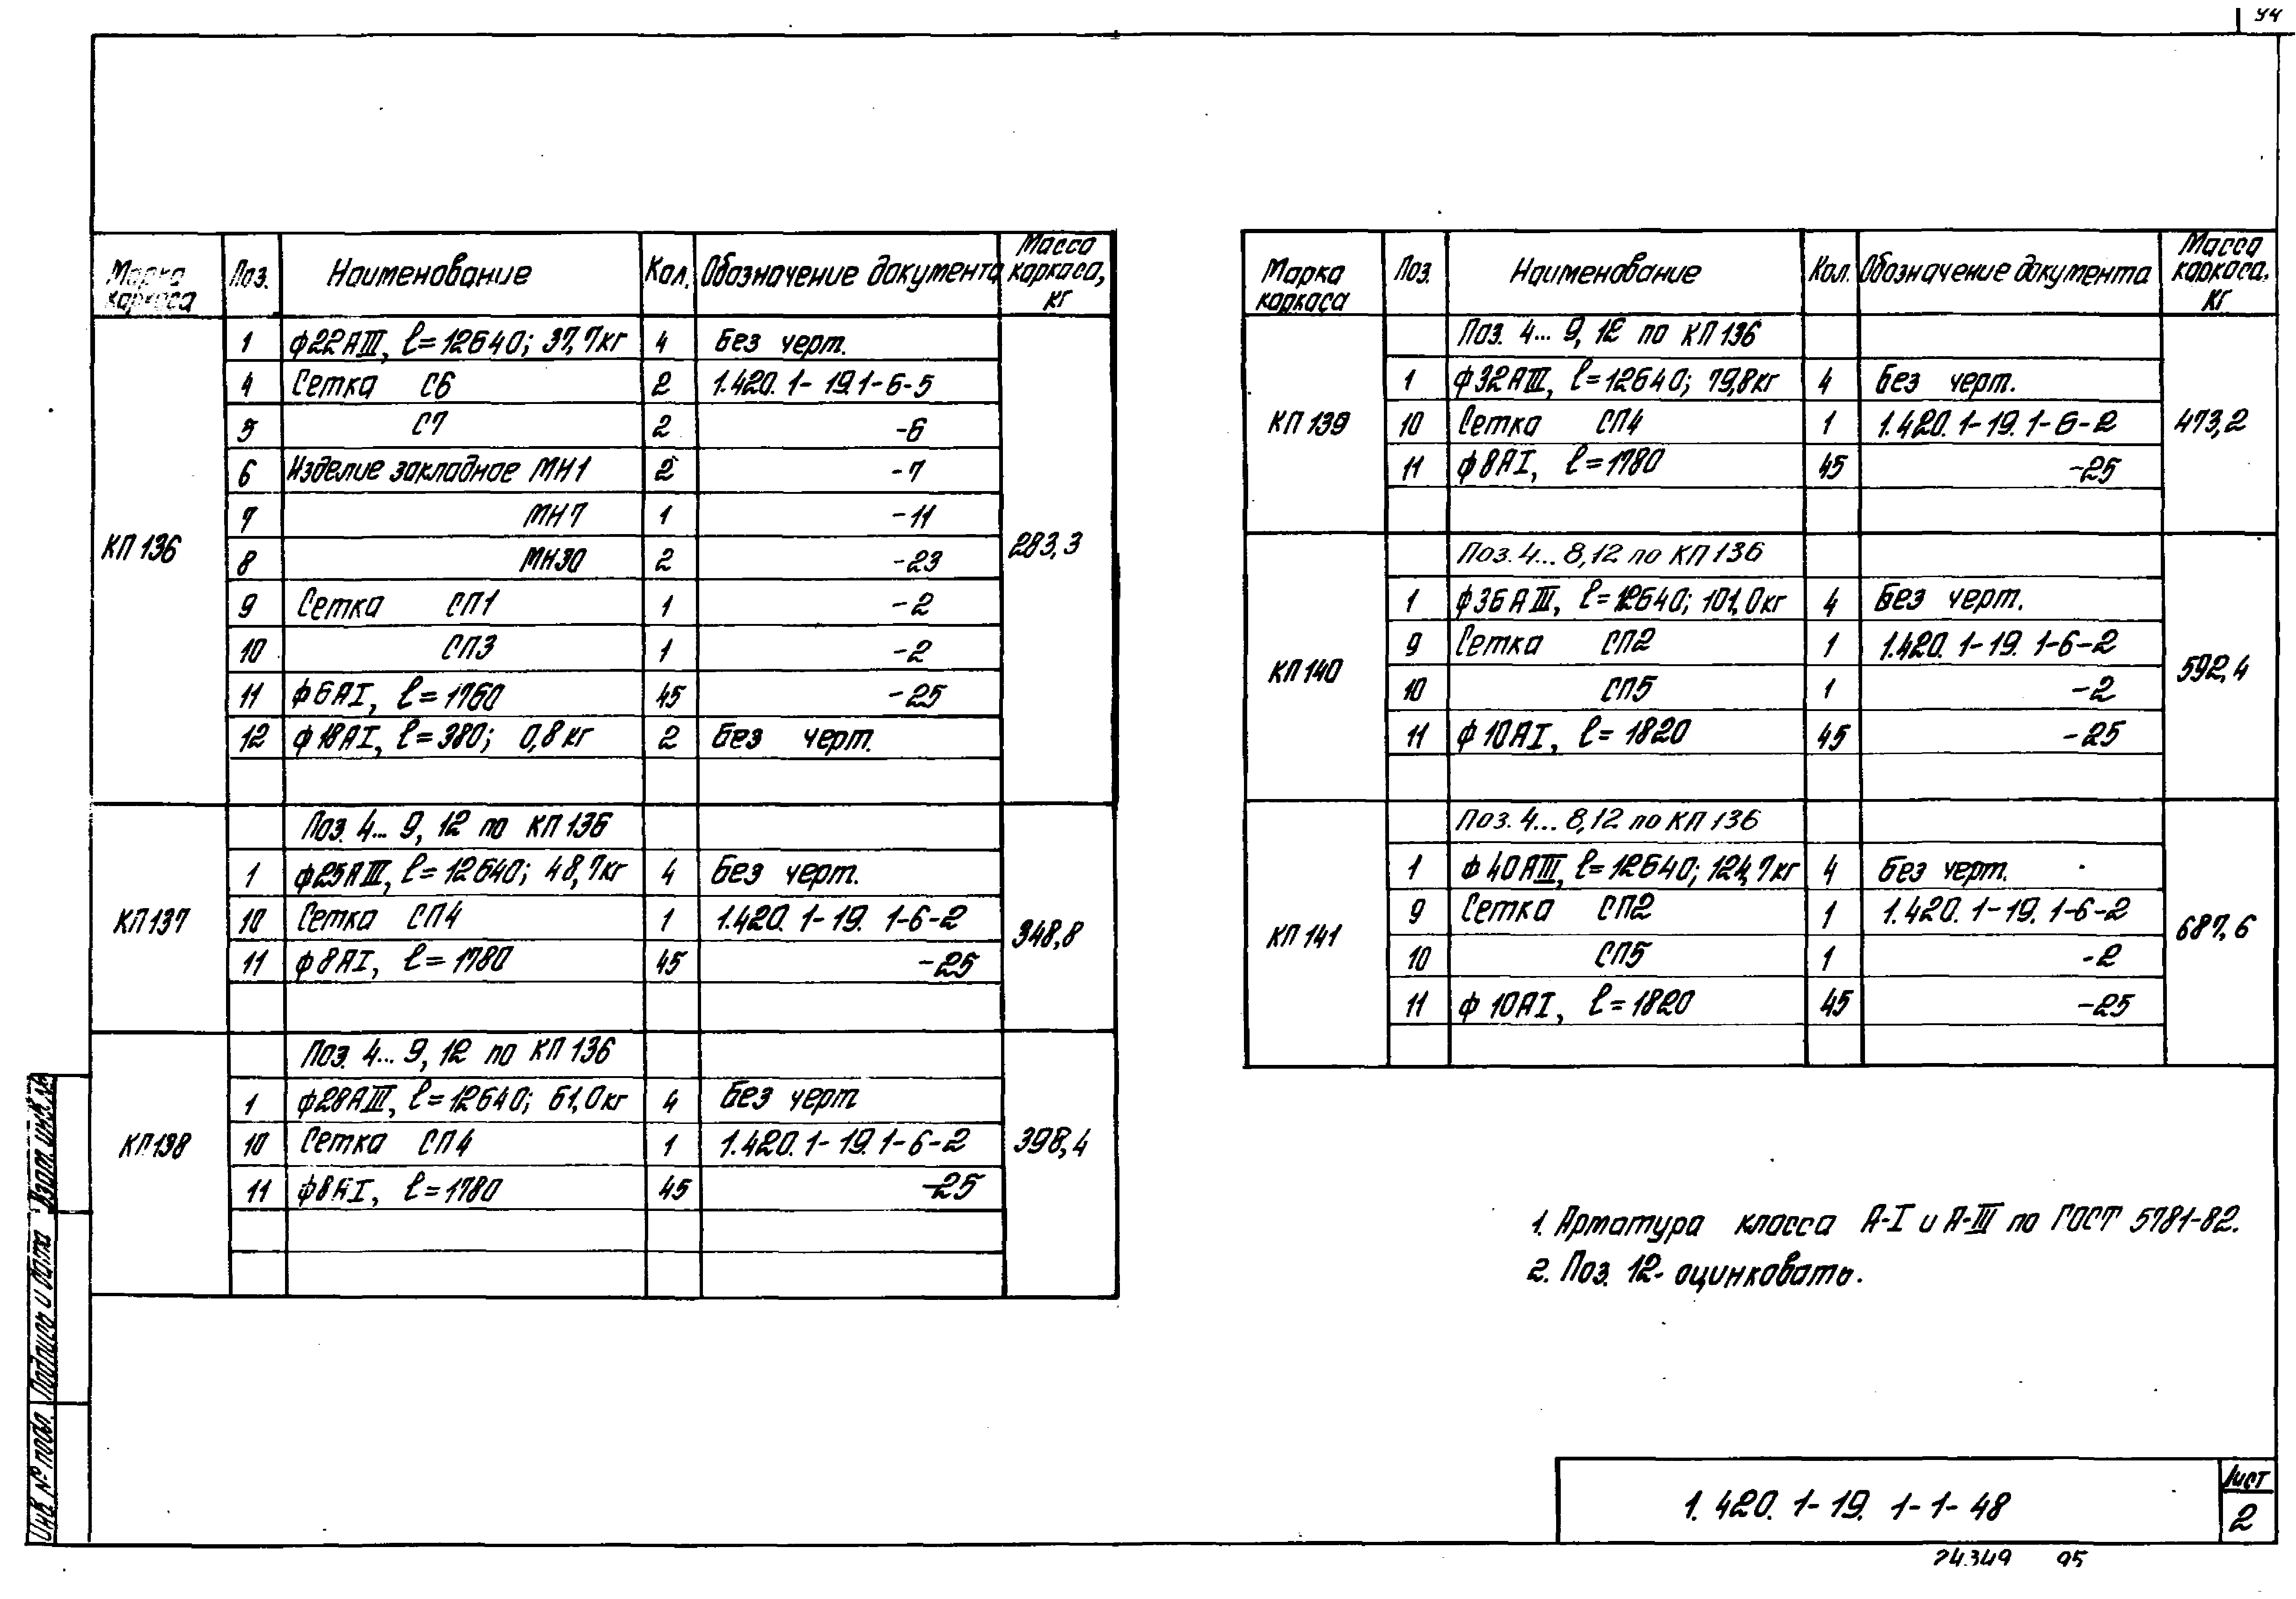 44
Марка каркаса | Поз. | Наименование | Кол. | Обозначение документа | Масса каркаса, кг
КП 136 | 283,3
1 | ф22АIII, ℓ=12640; 37,7кг | 4 | Без черт.
4 | Сетка С6 | 2 | 1.420.1-19.1-6-5
5 | С7 | 2 | -6
6 | Изделие закладное МН1 | 2 | -7
7 | МН7 | 1 | -11
8 | МН30 | 2 | -23
9 | Сетка СП1 | 1 | -2
10 | СП3 | 1 | -2
11 | ф6АI, ℓ=1760 | 45 | -25
12 | ф18АI, ℓ=380; 0,8кг | 2 | Без черт.
КП137 | 348,8
Поз. 4... 9, 12 по КП136
1 | ф25АIII, ℓ=12640; 48,7кг | 4 | Без черт.
10 | Сетка СП4 | 1 | 1.420.1-19.1-6-2
11 | ф8АI, ℓ=1780 | 45 | -25
КП138 | 398,4
Поз. 4... 9, 12 по КП136
1 | ф28АIII, ℓ=12640; 61,0кг | 4 | Без черт
10 | Сетка СП4 | 1 | 1.420.1-19.1-6-2
11 | ф8АI, ℓ=1780 | 45 | -25
Марка каркаса | Поз. | Наименование | Кол. | Обозначение документа | Масса каркаса, кг
КП139 | 473,2
Поз. 4... 9, 12 по КП136
1 | ф32АIII, ℓ=12640; 79,8кг | 4 | Без черт.
10 | Сетка СП4 | 1 | 1.420.1-19.1-6-2
11 | ф8АI, ℓ=1780 | 45 | -25
КП140 | 592,4
Поз. 4... 8,12 по КП136
1 | ф36АIII, ℓ=12640; 101,0кг | 4 | Без черт.
9 | Сетка СП2 | 1 | 1.420.1-19.1-6-2
10 | СП5 | 1 | -2
11 | ф10АI, ℓ=1820 | 45 | -25
КП141 | 687,6
Поз. 4... 8,12 по КП136
1 | ф40АIII, ℓ=12640; 124,7кг | 4 | Без черт.
9 | Сетка СП2 | 1 | 1.420.1-19.1-6-2
10 | СП5 | 1 | -2
11 | ф10АI, ℓ=1820 | 45 | -25
1. Арматура класса А-I и А-III по ГОСТ 5781-82.
2. Поз. 12- оцинковать.
Инв № подл. Подпись и дата Взам. инв. №
1.420.1-19.1-1-48
Лист
2
24349 95